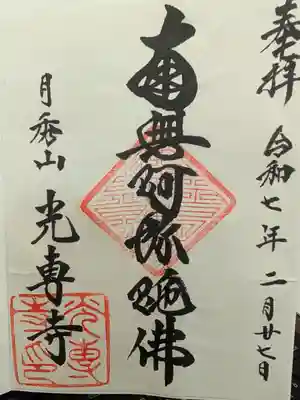 奉拝 令和七年二月廿七日
南無阿弥陀佛
月秀山 光専寺
光専寺印